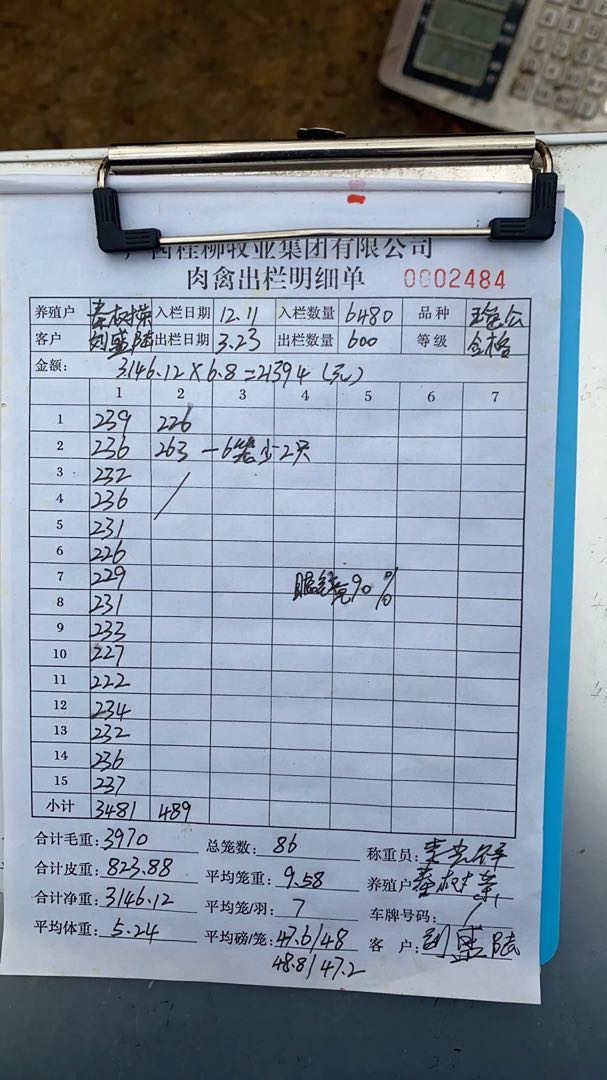 广西桂柳牧业集团有限公司
肉禽出栏明细单 0002484
养殖户 秦树荣 入栏日期 12.11 入栏数量 6480 品种
客户 刘盛陆 出栏日期 3.23 出栏数量 600 等级 合格
金额: 3146.12×6.8=21394(元)
1 2 3 4 5 6 7
1 239 226
2 236 263 一6笼少2只
3 232 /
4 236
5 231
6 226
7 229 90%
8 231
9 233
10 227
11 222
12 234
13 232
14 236
15 237
小计 3481 489
合计毛重: 3970 总笼数: 86 称重员:
合计皮重: 823.88 平均笼重: 9.58 养殖户 秦树荣
合计净重: 3146.12 平均笼/羽: 7 车牌号码: /
平均体重: 5.24 平均磅/笼: 47.6/48 客户: 刘盛陆
48.8/47.2